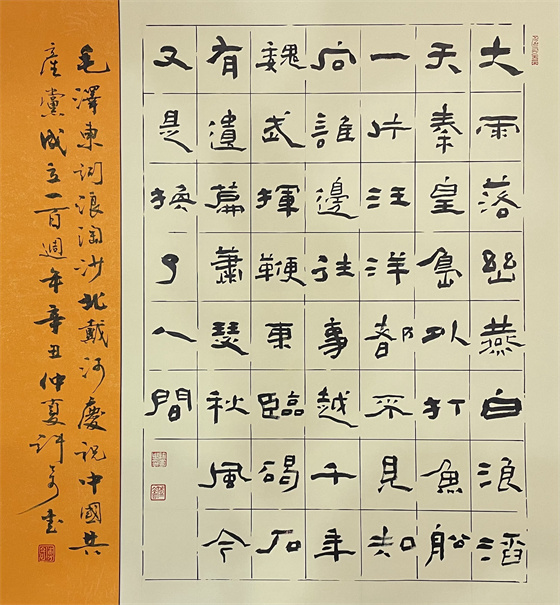 大雨落幽燕白浪滔
天秦皇島外打魚船
一片汪洋都不見知
向誰邊往事越千年
魏武揮鞭東臨碣石
有遺篇蕭瑟秋風今
又是換了人間
毛澤東詞浪淘沙北戴河慶祝中國共
產黨成立一百週年辛丑仲夏許書